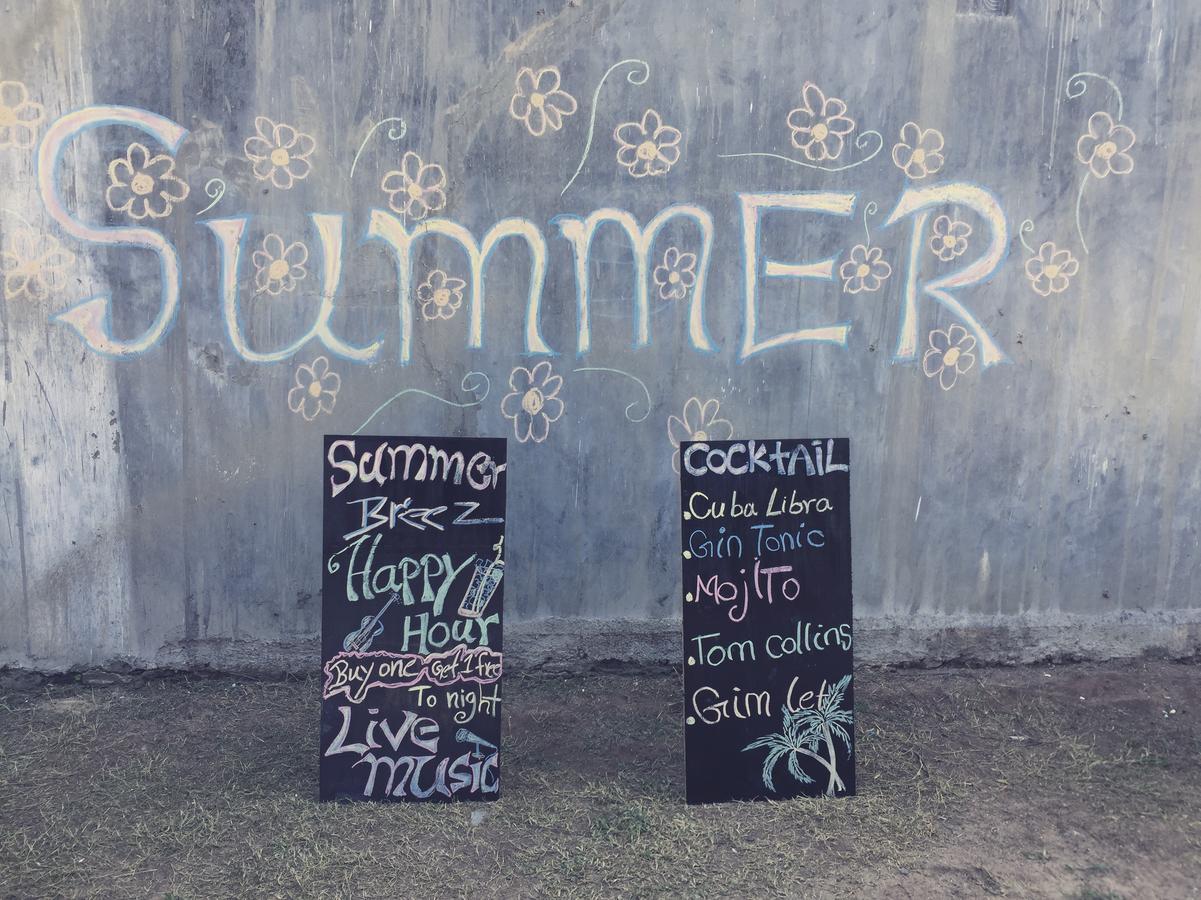 SummER
Summer
Breez
Happy
Hour
Buy one Get 1 free
To night
Live
music
COCKtAiL
.Cuba Libra
.Gin Tonic
.MojITo
.Tom collins
.Gim let